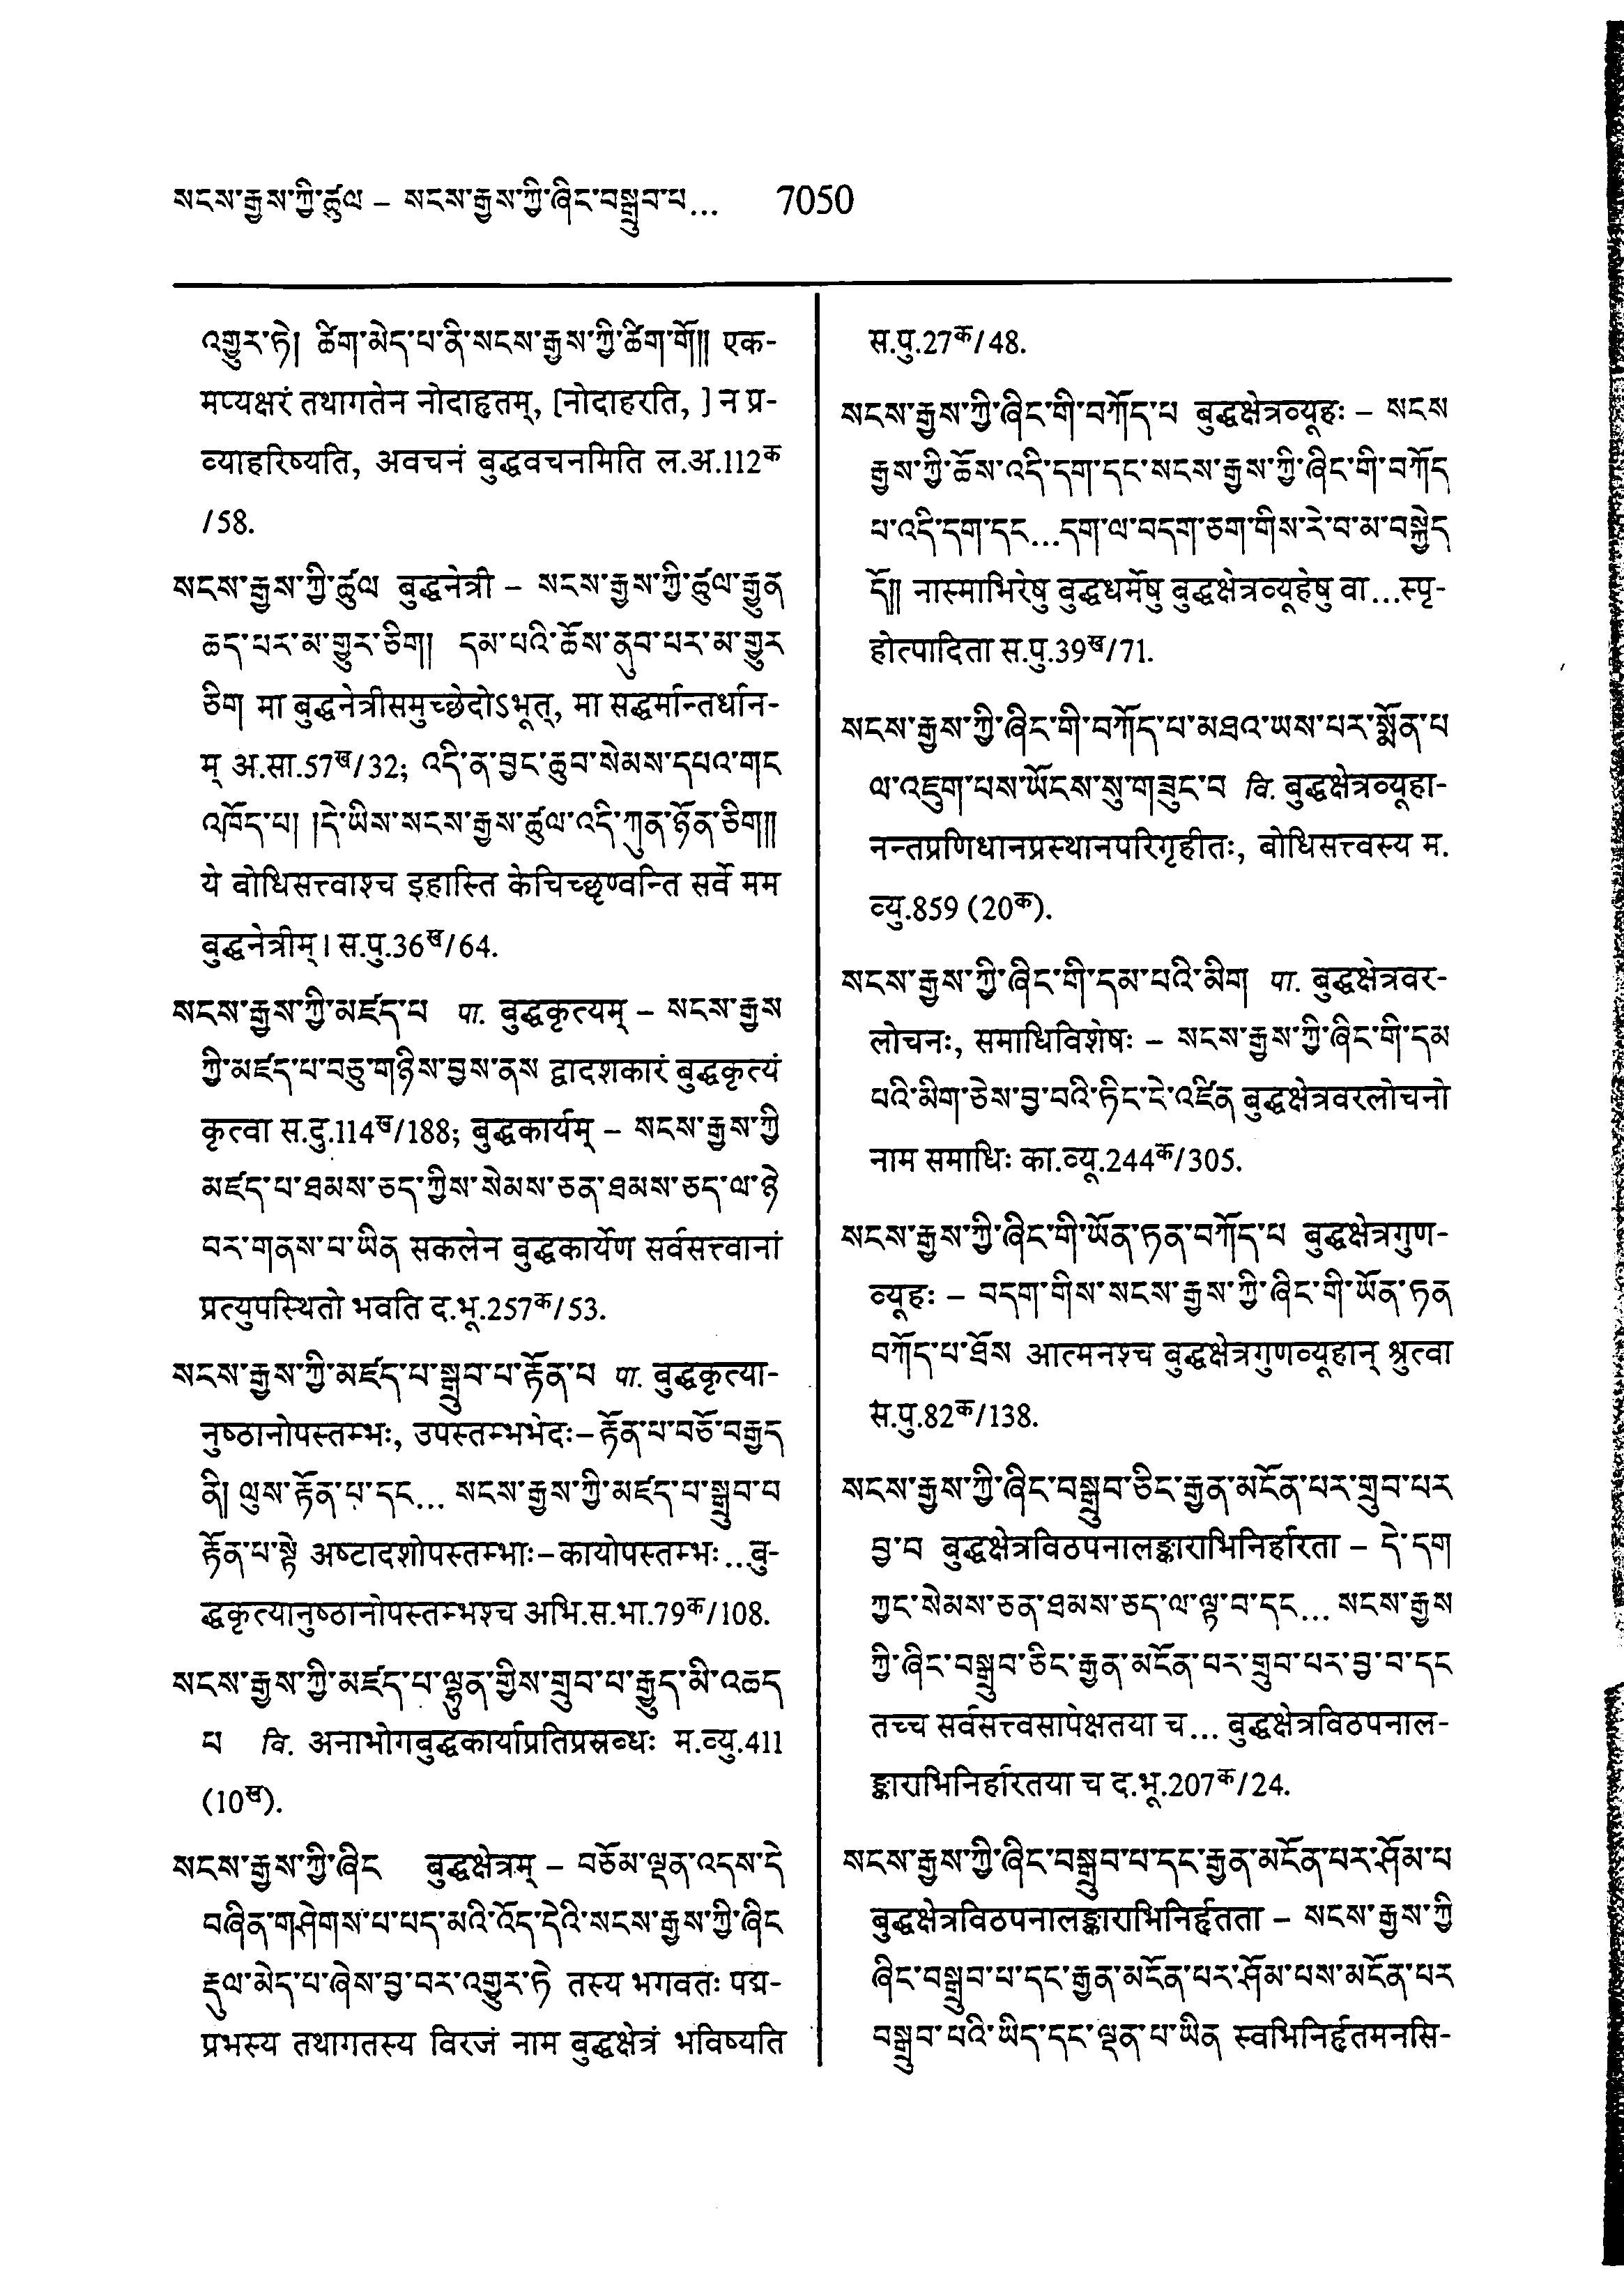 སངས་རྒྱས་ཀྱི་ཚུལ – སངས་རྒྱས་ཀྱི་ཞིང་བསྒྲུབ་པ... 7050
འགྱུར་ཏེ། ཚིག་མེད་པ་ནི་སངས་རྒྱས་ཀྱི་ཚིག་གོ།། एक-
मप्यक्षरं तथागतेन नोदाहृतम्, [नोदाहरति, ] न प्र-
व्याहरिष्यति, अवचनं बुद्धवचनमिति ल.अ.112क
/58.
སངས་རྒྱས་ཀྱི་ཚུལ बुद्धनेत्री – སངས་རྒྱས་ཀྱི་ཚུལ་རྒྱུན
ཆད་པར་མ་གྱུར་ཅིག། དམ་པའི་ཆོས་ནུབ་པར་མ་གྱུར
ཅིག། मा बुद्धनेत्रीसमुच्छेदोऽभूत्, मा सद्धर्मान्तर्धान-
म् अ.सा.57ख/32; འདི་ན་བྱང་ཆུབ་སེམས་དཔའ་གང
འཁོད་པ། །དེ་ཡིས་སངས་རྒྱས་ཚུལ་འདི་ཀུན་ཉོན་ཅིག།།
ये बोधिसत्त्वाश्च इहास्ति केचिच्छृण्वन्ति सर्वे मम
बुद्धनेत्रीम् । स.पु.36ख/64.
སངས་རྒྱས་ཀྱི་མཛད་པ पा. बुद्धकृत्यम् – སངས་རྒྱས
ཀྱི་མཛད་པ་བཅུ་གཉིས་བྱས་ནས द्वादशकारं बुद्धकृत्यं
कृत्वा स.दु.114ख/188; बुद्धकार्यम् – སངས་རྒྱས་ཀྱི
མཛད་པ་ཐམས་ཅད་ཀྱིས་སེམས་ཅན་ཐམས་ཅད་ལ་ཉེ
བར་གནས་པ་ཡིན सकलेन बुद्धकार्येण सर्वसत्त्वानां
प्रत्युपस्थितो भवति द.भू.257क/53.
སངས་རྒྱས་ཀྱི་མཛད་པ་སྒྲུབ་པ་རྟོན་པ पा. बुद्धकृत्या-
नुष्ठानोपस्तम्भः, उपस्तम्भभेदः – རྟོན་པ་བཅོ་བརྒྱད
ནི། ལུས་རྟོན་པ་དང... སངས་རྒྱས་ཀྱི་མཛད་པ་སྒྲུབ་པ
རྟོན་པ་སྟེ अष्टादशोपस्तम्भाः – कायोपस्तम्भः ...बु-
द्धकृत्यानुष्ठानोपस्तम्भश्च अभि.स.भा.79क/108.
སངས་རྒྱས་ཀྱི་མཛད་པ་ལྷུན་གྱིས་གྲུབ་པ་རྒྱུད་མི་འཆད
པ वि. अनाभोगबुद्धकार्याप्रतिप्रस्रब्धः म.व्यु.411
(10ख).
སངས་རྒྱས་ཀྱི་ཞིང बुद्धक्षेत्रम् – བཅོམ་ལྡན་འདས་དེ
བཞིན་གཤེགས་པ་པད་མའི་འོད་དེའི་སངས་རྒྱས་ཀྱི་ཞིང
རྡུལ་མེད་པ་ཞེས་བྱ་བར་འགྱུར་ཏེ तस्य भगवतः पद्म-
प्रभस्य तथागतस्य विरजं नाम बुद्धक्षेत्रं भविष्यति
स.पु.27क/48.
སངས་རྒྱས་ཀྱི་ཞིང་གི་བཀོད་པ बुद्धक्षेत्रव्यूहः – སངས
རྒྱས་ཀྱི་ཆོས་འདི་དག་དང་སངས་རྒྱས་ཀྱི་ཞིང་གི་བཀོད
པ་འདི་དག་དང...དག་ལ་བདག་ཅག་གིས་རེ་བ་མ་བསྐྱེད
དོ།། नास्माभिरेषु बुद्धधर्मेषु बुद्धक्षेत्रव्यूहेषु वा...स्पृ-
होत्पादिता स.पु.39ख/71.
སངས་རྒྱས་ཀྱི་ཞིང་གི་བཀོད་པ་མཐའ་ཡས་པར་སྨོན་པ
ལ་འཇུག་པས་ཡོངས་སུ་གཟུང་བ वि. बुद्धक्षेत्रव्यूहा-
नन्तप्रणिधानप्रस्थानपरिगृहीतः, बोधिसत्त्वस्य म.
व्यु.859 (20क).
སངས་རྒྱས་ཀྱི་ཞིང་གི་དམ་པའི་མིག पा. बुद्धक्षेत्रवर-
लोचनः, समाधिविशेषः – སངས་རྒྱས་ཀྱི་ཞིང་གི་དམ
པའི་མིག་ཅེས་བྱ་བའི་ཏིང་ངེ་འཛིན बुद्धक्षेत्रवरलोचनो
नाम समाधिः का.व्यू.244क/305.
སངས་རྒྱས་ཀྱི་ཞིང་གི་ཡོན་ཏན་བཀོད་པ बुद्धक्षेत्रगुण-
व्यूहः – བདག་གིས་སངས་རྒྱས་ཀྱི་ཞིང་གི་ཡོན་ཏན
བཀོད་པ་ཐོས आत्मनश्च बुद्धक्षेत्रगुणव्यूहान् श्रुत्वा
स.पु.82क/138.
སངས་རྒྱས་ཀྱི་ཞིང་བསྒྲུབ་ཅིང་རྒྱན་མངོན་པར་གྲུབ་པར
བྱ་བ बुद्धक्षेत्रविठपनालङ्काराभिनिर्हारता – དེ་དག
ཀྱང་སེམས་ཅན་ཐམས་ཅད་ལ་ལྟ་བ་དང... སངས་རྒྱས
ཀྱི་ཞིང་བསྒྲུབ་ཅིང་རྒྱན་མངོན་པར་གྲུབ་པར་བྱ་བ་དང
तच्च सर्वसत्त्वसापेक्षतया च... बुद्धक्षेत्रविठपनाल-
ङ्काराभिनिर्हारतया च द.भू.207क/24.
སངས་རྒྱས་ཀྱི་ཞིང་བསྒྲུབ་པ་དང་རྒྱན་མངོན་པར་ཤོམ་པ
बुद्धक्षेत्रविठपनालङ्काराभिनिर्हृतता – སངས་རྒྱས་ཀྱི
ཞིང་བསྒྲུབ་པ་དང་རྒྱན་མངོན་པར་ཤོམ་པས་མངོན་པར
བསྒྲུབ་པའི་ཡིད་དང་ལྡན་པ་ཡིན स्वभिनिर्हृतमनसि-